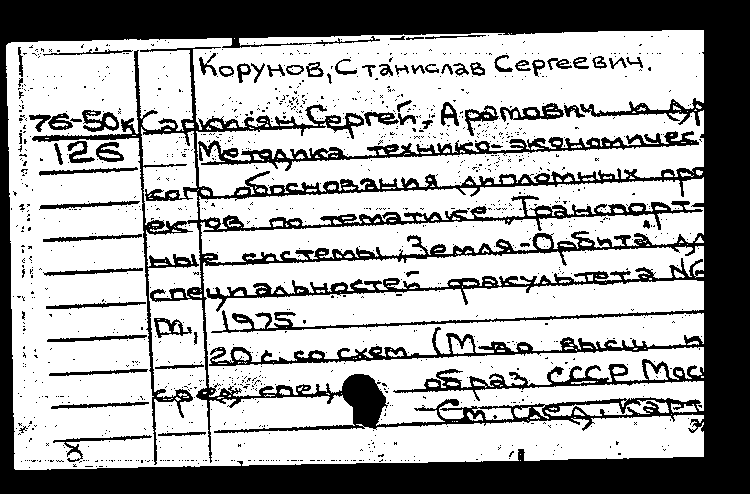 Корунов, Станислав Сергеевич.
76-50к Саркисян, Сергей, Арамович и др
126 Методика технико-экономичес-
кого обоснования дипломных про
ектов по тематике „Транспорт-
ные системы „Земля-Орбита" дл
специальностей факультета №6
М., 1975.
20 с. со схем. (М-во высш. и
сред. спец. образ. СССР Мос
См. след. карт